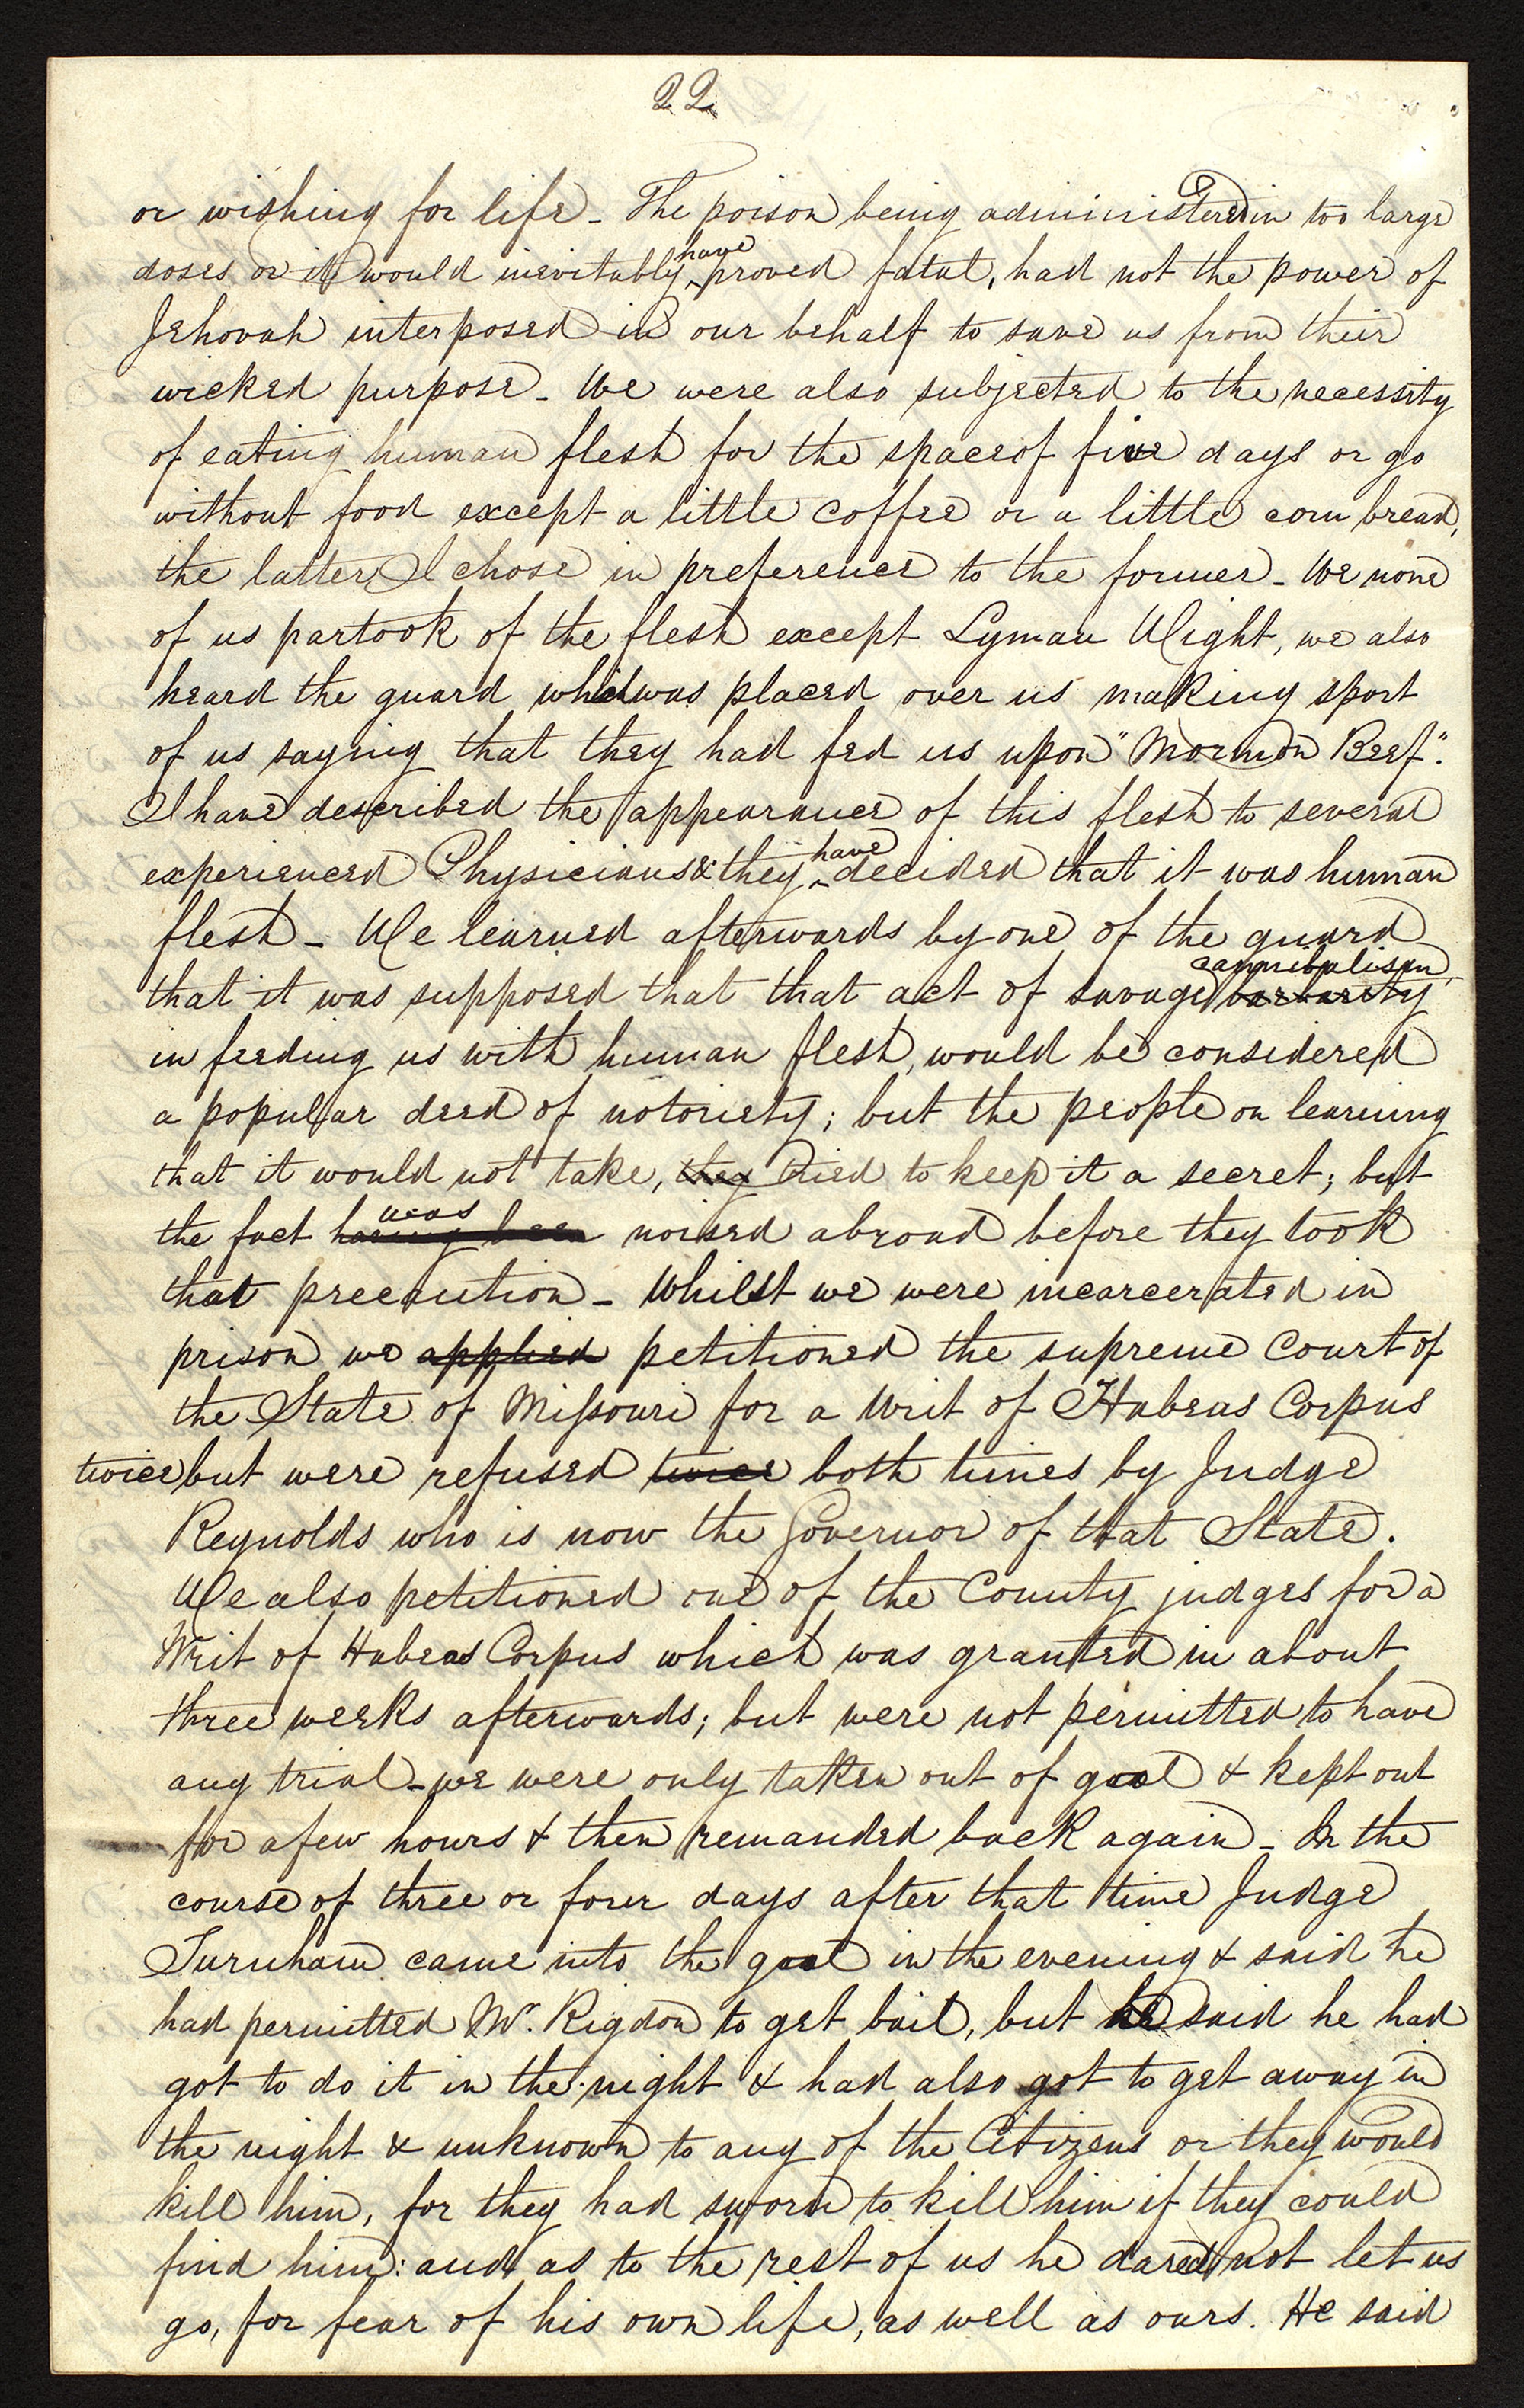 22
or wishing for life - The poison being administered in too large
doses or it would inevitably have proved fatal, had not the power of
Jehovah interposed in our behalf to save us from their
wicked purpose - We were also subjected to the necessity
of eating human flesh for the space of five days or go
without food except a little coffee or a little corn bread,
the latter I chose in preference to the former - We none
of us partook of the flesh except Lyman Wight, we also
heard the guard which was placed over us making sport
of us saying that they had fed us upon "Mormon Beef".
I have described the appearance of this flesh to several
experienced Physicians & they have decided that it was human
flesh - We learned afterwards by one of the guard
that it was supposed that that act of savage barbarity cannibalism
in feeding us with human flesh, would be considered
a popular deed of notoriety; but the people on learning
that it would not take, they tried to keep it a secret; but
the fact having been was noised abroad before they took
that precaution - Whilst we were incarcerated in
prison we applied petitioned the supreme Court of
the State of Missouri for a Writ of Habeas Corpus
twice but were refused twice both times by Judge
Reynolds who is now the Governor of that State.
We also petitioned one of the County judges for a
Writ of Habeas Corpus which was granted in about
three weeks afterwards; but were not permitted to have
any trial - we were only taken out of goal & kept out
for a few hours & then remanded back again - In the
course of three or four days after that time Judge
Turnham came into the goal in the evening & said he
had permitted Mr. Rigdon to get bail, but he said he had
got to do it in the night & had also got to get away in
the night & unknown to any of the Citizens or they would
kill him, for they had sworn to kill him if they could
find him: and as to the rest of us he dared not let us
go, for fear of his own life, as well as ours. He said